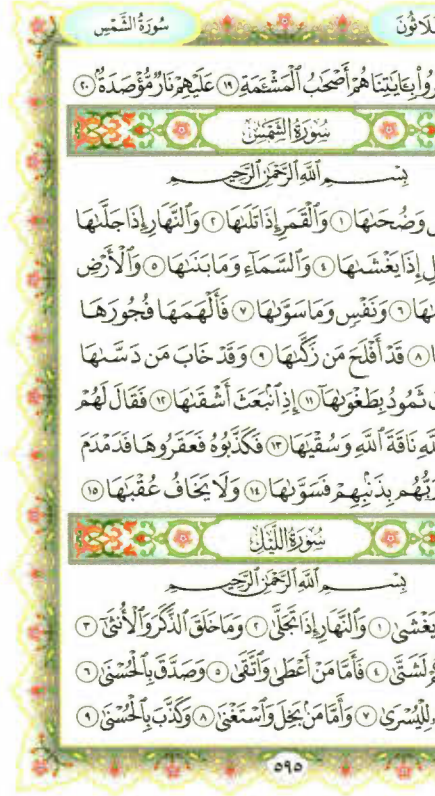 لَاثُونَ سُورَةُ الشَّمْسِ
رُوا۟ بِـَٔايَـٰتِنَا هُمْ أَصْحَـٰبُ ٱلْمَشْـَٔمَةِ ١٩ عَلَيْهِمْ نَارٌ مُّؤْصَدَةٌۢ ٢٠
سُورَةُ الشَّمْسِ
بِسْمِ ٱللَّهِ ٱلرَّحْمَـٰنِ ٱلرَّحِيمِ
وَضُحَىٰهَا ١ وَٱلْقَمَرِ إِذَا تَلَىٰهَا ٢ وَٱلنَّهَارِ إِذَا جَلَّىٰهَا
لِ إِذَا يَغْشَىٰهَا ٤ وَٱلسَّمَآءِ وَمَا بَنَىٰهَا ٥ وَٱلْأَرْضِ
ىٰهَا ٦ وَنَفْسٍ وَمَا سَوَّىٰهَا ٧ فَأَلْهَمَهَا فُجُورَهَا
ا ٨ قَدْ أَفْلَحَ مَن زَكَّىٰهَا ٩ وَقَدْ خَابَ مَن دَسَّىٰهَا
ثَمُودُ بِطَغْوَىٰهَآ ١١ إِذِ ٱنۢبَعَثَ أَشْقَىٰهَا ١٢ فَقَالَ لَهُمْ
لَّهِ نَاقَةَ ٱللَّهِ وَسُقْيَـٰهَا ١٣ فَكَذَّبُوهُ فَعَقَرُوهَا فَدَمْدَمَ
رَبُّهُم بِذَنۢبِهِمْ فَسَوَّىٰهَا ١٤ وَلَا يَخَافُ عُقْبَـٰهَا ١٥
سُورَةُ اللَّيْلِ
بِسْمِ ٱللَّهِ ٱلرَّحْمَـٰنِ ٱلرَّحِيمِ
يَغْشَىٰ ١ وَٱلنَّهَارِ إِذَا تَجَلَّىٰ ٢ وَمَا خَلَقَ ٱلذَّكَرَ وَٱلْأُنثَىٰٓ ٣
لَشَتَّىٰ ٤ فَأَمَّا مَنْ أَعْطَىٰ وَٱتَّقَىٰ ٥ وَصَدَّقَ بِٱلْحُسْنَىٰ ٦
لِلْيُسْرَىٰ ٧ وَأَمَّا مَنۢ بَخِلَ وَٱسْتَغْنَىٰ ٨ وَكَذَّبَ بِٱلْحُسْنَىٰ ٩
٥٩٥